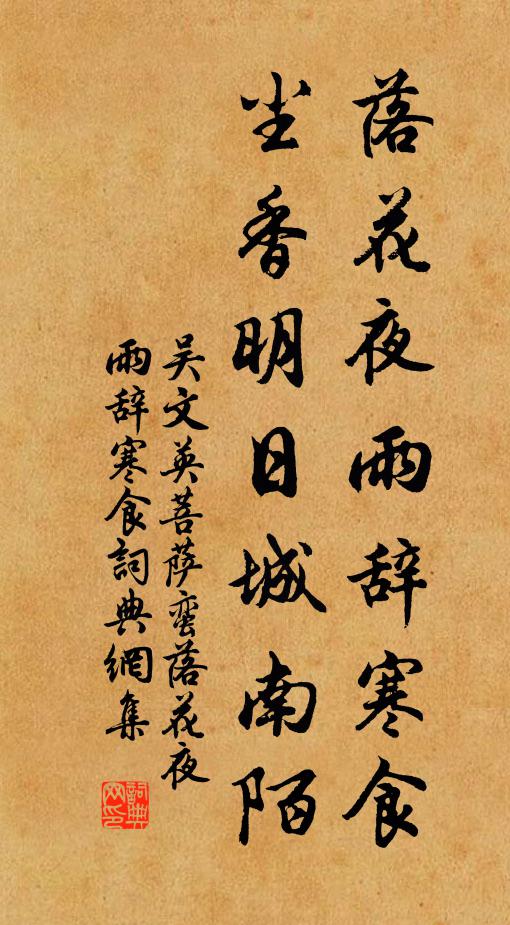 落花夜雨辞寒食
尘香明日城南陌
吴文英菩萨蛮落花夜
雨辞寒食詞典網集
詞典网印